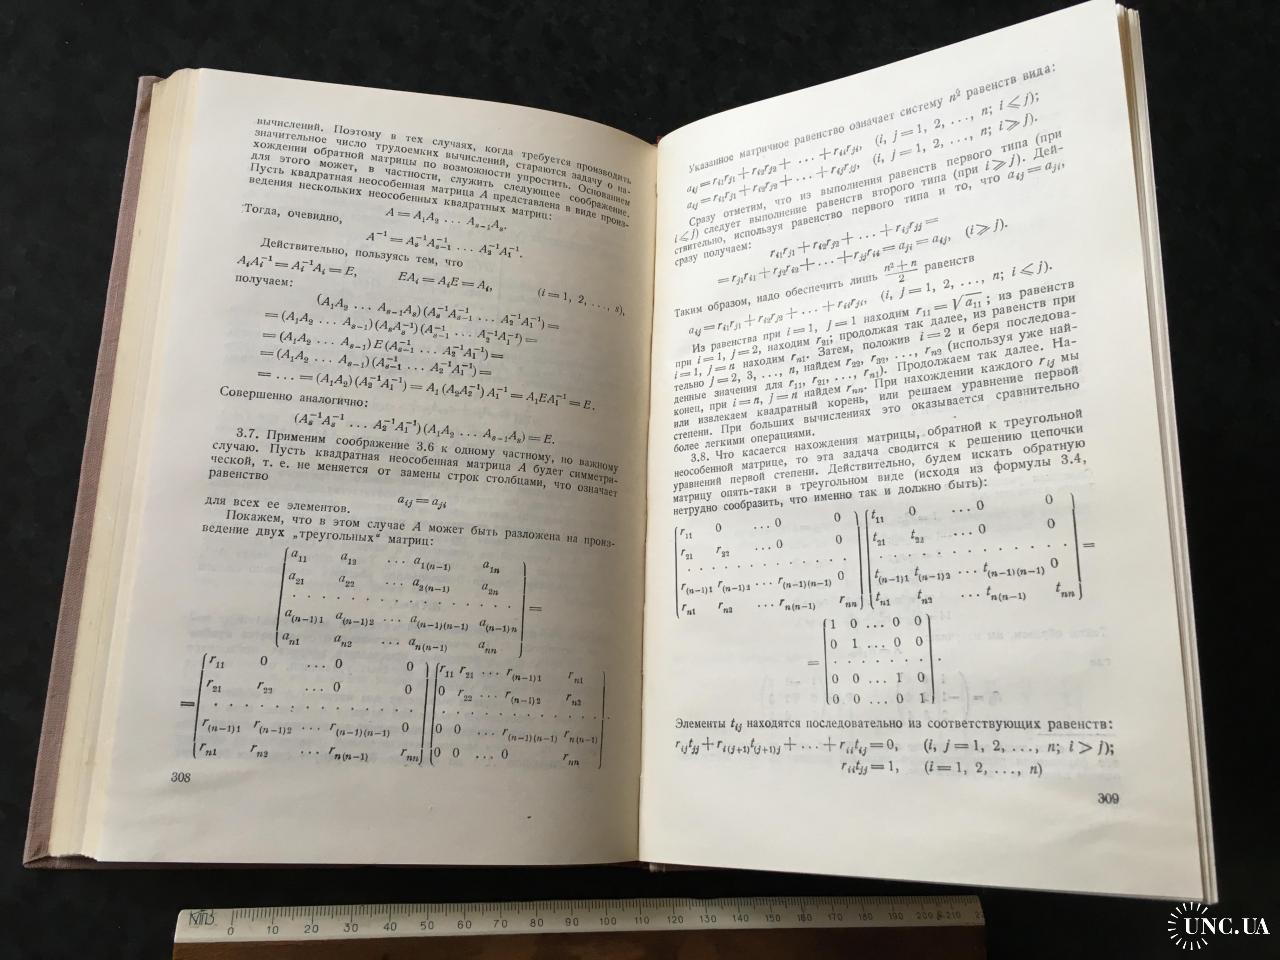 вычислений. Поэтому в тех случаях, когда требуется производить
значительное число трудоемких вычислений, стараются задачу о на-
хождении обратной матрицы по возможности упростить. Основанием
для этого может, в частности, служить следующее соображение.
Пусть квадратная неособенная матрица A представлена в виде произ-
ведения нескольких неособенных квадратных матриц:
A = A₁A₂ ... Aₛ₋₁Aₛ.
Тогда, очевидно,
A⁻¹ = Aₛ⁻¹Aₛ₋₁⁻¹ ... A₂⁻¹A₁⁻¹.
Действительно, пользуясь тем, что
AᵢAᵢ⁻¹ = Aᵢ⁻¹Aᵢ = E, EAᵢ = AᵢE = Aᵢ, (i = 1, 2, ..., s),
получаем:
(A₁A₂ ... Aₛ₋₁Aₛ)(Aₛ⁻¹Aₛ₋₁⁻¹ ... A₂⁻¹A₁⁻¹) =
= (A₁A₂ ... Aₛ₋₁)(AₛAₛ⁻¹)(Aₛ₋₁⁻¹ ... A₂⁻¹A₁⁻¹) =
= (A₁A₂ ... Aₛ₋₁) E (Aₛ₋₁⁻¹ ... A₂⁻¹A₁⁻¹) =
= (A₁A₂ ... Aₛ₋₁)(Aₛ₋₁⁻¹ ... A₂⁻¹A₁⁻¹) =
= ... = (A₁A₂)(A₂⁻¹A₁⁻¹) = A₁(A₂A₂⁻¹)A₁⁻¹ = A₁EA₁⁻¹ = E.
Совершенно аналогично:
(Aₛ⁻¹Aₛ₋₁⁻¹ ... A₂⁻¹A₁⁻¹)(A₁A₂ ... Aₛ₋₁Aₛ) = E.
3.7. Применим соображение 3.6 к одному частному, но важному
случаю. Пусть квадратная неособенная матрица A будет симметри-
ческой, т. е. не меняется от замены строк столбцами, что означает
равенство
a_ij = a_ji
для всех ее элементов.
Покажем, что в этом случае A может быть разложена на произ-
ведение двух „треугольных“ матриц:
a₁₁ a₁₂ ... a₁₍ₙ₋₁₎ a₁ₙ
a₂₁ a₂₂ ... a₂₍ₙ₋₁₎ a₂ₙ
. . . . . . . . . . . . . . =
a₍ₙ₋₁₎₁ a₍ₙ₋₁₎₂ ... a₍ₙ₋₁₎₍ₙ₋₁₎ a₍ₙ₋₁₎ₙ
aₙ₁ aₙ₂ ... aₙ₍ₙ₋₁₎ aₙₙ
r₁₁ 0 ... 0 0 r₁₁ r₂₁ ... r₍ₙ₋₁₎₁ rₙ₁
r₂₁ r₂₂ ... 0 0 0 r₂₂ ... r₍ₙ₋₁₎₂ rₙ₂
= . . . . . . . . . . . . . . . . . . . . . . . .
r₍ₙ₋₁₎₁ r₍ₙ₋₁₎₂ ... r₍ₙ₋₁₎₍ₙ₋₁₎ 0 0 0 ... r₍ₙ₋₁₎₍ₙ₋₁₎ rₙ₍ₙ₋₁₎
rₙ₁ rₙ₂ ... rₙ₍ₙ₋₁₎ rₙₙ 0 0 ... 0 rₙₙ
308
Указанное матричное равенство означает систему n² равенств вида:
a_ij = r_i1 r_j1 + r_i2 r_j2 + ... + r_ii r_ji, (i, j = 1, 2, ..., n; i ⩽ j);
a_ij = r_i1 r_j1 + r_i2 r_j2 + ... + r_ij r_jj, (i, j = 1, 2, ..., n; i ⩾ j).
Сразу отметим, что из выполнения равенств первого типа (при
i ⩽ j) следует выполнение равенств второго типа (при i ⩾ j). Дей-
ствительно, используя равенство первого типа и то, что a_ij = a_ji,
сразу получаем:
r_i1 r_j1 + r_i2 r_j2 + ... + r_ij r_jj =
= r_j1 r_i1 + r_j2 r_i2 + ... + r_jj r_ij = a_ji = a_ij, (i ⩾ j).
Таким образом, надо обеспечить лишь (n² + n)/2 равенств
a_ij = r_i1 r_j1 + r_i2 r_j2 + ... + r_ii r_ji, (i, j = 1, 2, ..., n; i ⩽ j).
Из равенства при i = 1, j = 1 находим r₁₁ = √a₁₁; из равенств
при i = 1, j = 2, находим r₂₁; продолжая так далее, из равенств при
i = 1, j = n находим rₙ₁. Затем, положив i = 2 и беря последова-
тельно j = 2, 3, ..., n, найдем r₂₂, r₃₂, ..., rₙ₂ (используя уже най-
денные значения для r₁₁, r₂₁, ..., rₙ₁). Продолжаем так далее. На-
конец, при i = n, j = n найдем rₙₙ. При нахождении каждого r_ij мы
или извлекаем квадратный корень, или решаем уравнение первой
степени. При больших вычислениях это оказывается сравнительно
более легкими операциями.
3.8. Что касается нахождения матрицы, обратной к треугольной
неособенной матрице, то эта задача сводится к решению цепочки
уравнений первой степени. Действительно, будем искать обратную
матрицу опять-таки в треугольном виде (исходя из формулы 3.4,
нетрудно сообразить, что именно так и должно быть):
r₁₁ 0 ... 0 0 t₁₁ 0 ... 0 0
r₂₁ r₂₂ ... 0 0 t₂₁ t₂₂ ... 0 0
. . . . . . . . . . . . . . . . . . . . . . . . =
r₍ₙ₋₁₎₁ r₍ₙ₋₁₎₂ ... r₍ₙ₋₁₎₍ₙ₋₁₎ 0 t₍ₙ₋₁₎₁ t₍ₙ₋₁₎₂ ... t₍ₙ₋₁₎₍ₙ₋₁₎ 0
rₙ₁ rₙ₂ ... rₙ₍ₙ₋₁₎ rₙₙ tₙ₁ tₙ₂ ... tₙ₍ₙ₋₁₎ tₙₙ
1 0 ... 0 0
0 1 ... 0 0
= . . . . . . .
0 0 ... 1 0
0 0 ... 0 1
Элементы t_ij находятся последовательно из соответствующих равенств:
r_ij t_jj + r_i(j+1) t_(j+1)j + ... + r_ii t_ij = 0, (i, j = 1, 2, ..., n; i > j);
r_ii t_jj = 1, (i = 1, 2, ..., n)
309
0 10 20 30 40 50 60 70 80 90 100 110 120 130 140 150 160 170 180 190 200 210
UNC.UA